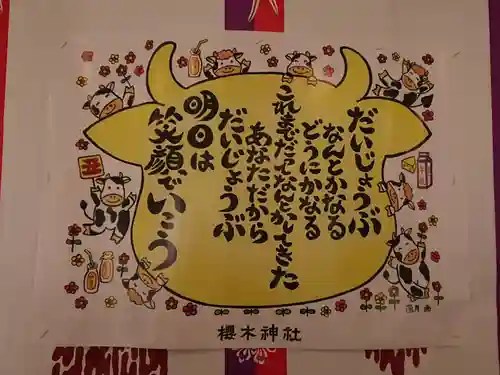 だいじょうぶ
なんとかなる
どうにかなる
これまでだってなんとかしてきた
あなただから
だいじょうぶ
明日は
笑顔でいこう
丑
櫻木神社